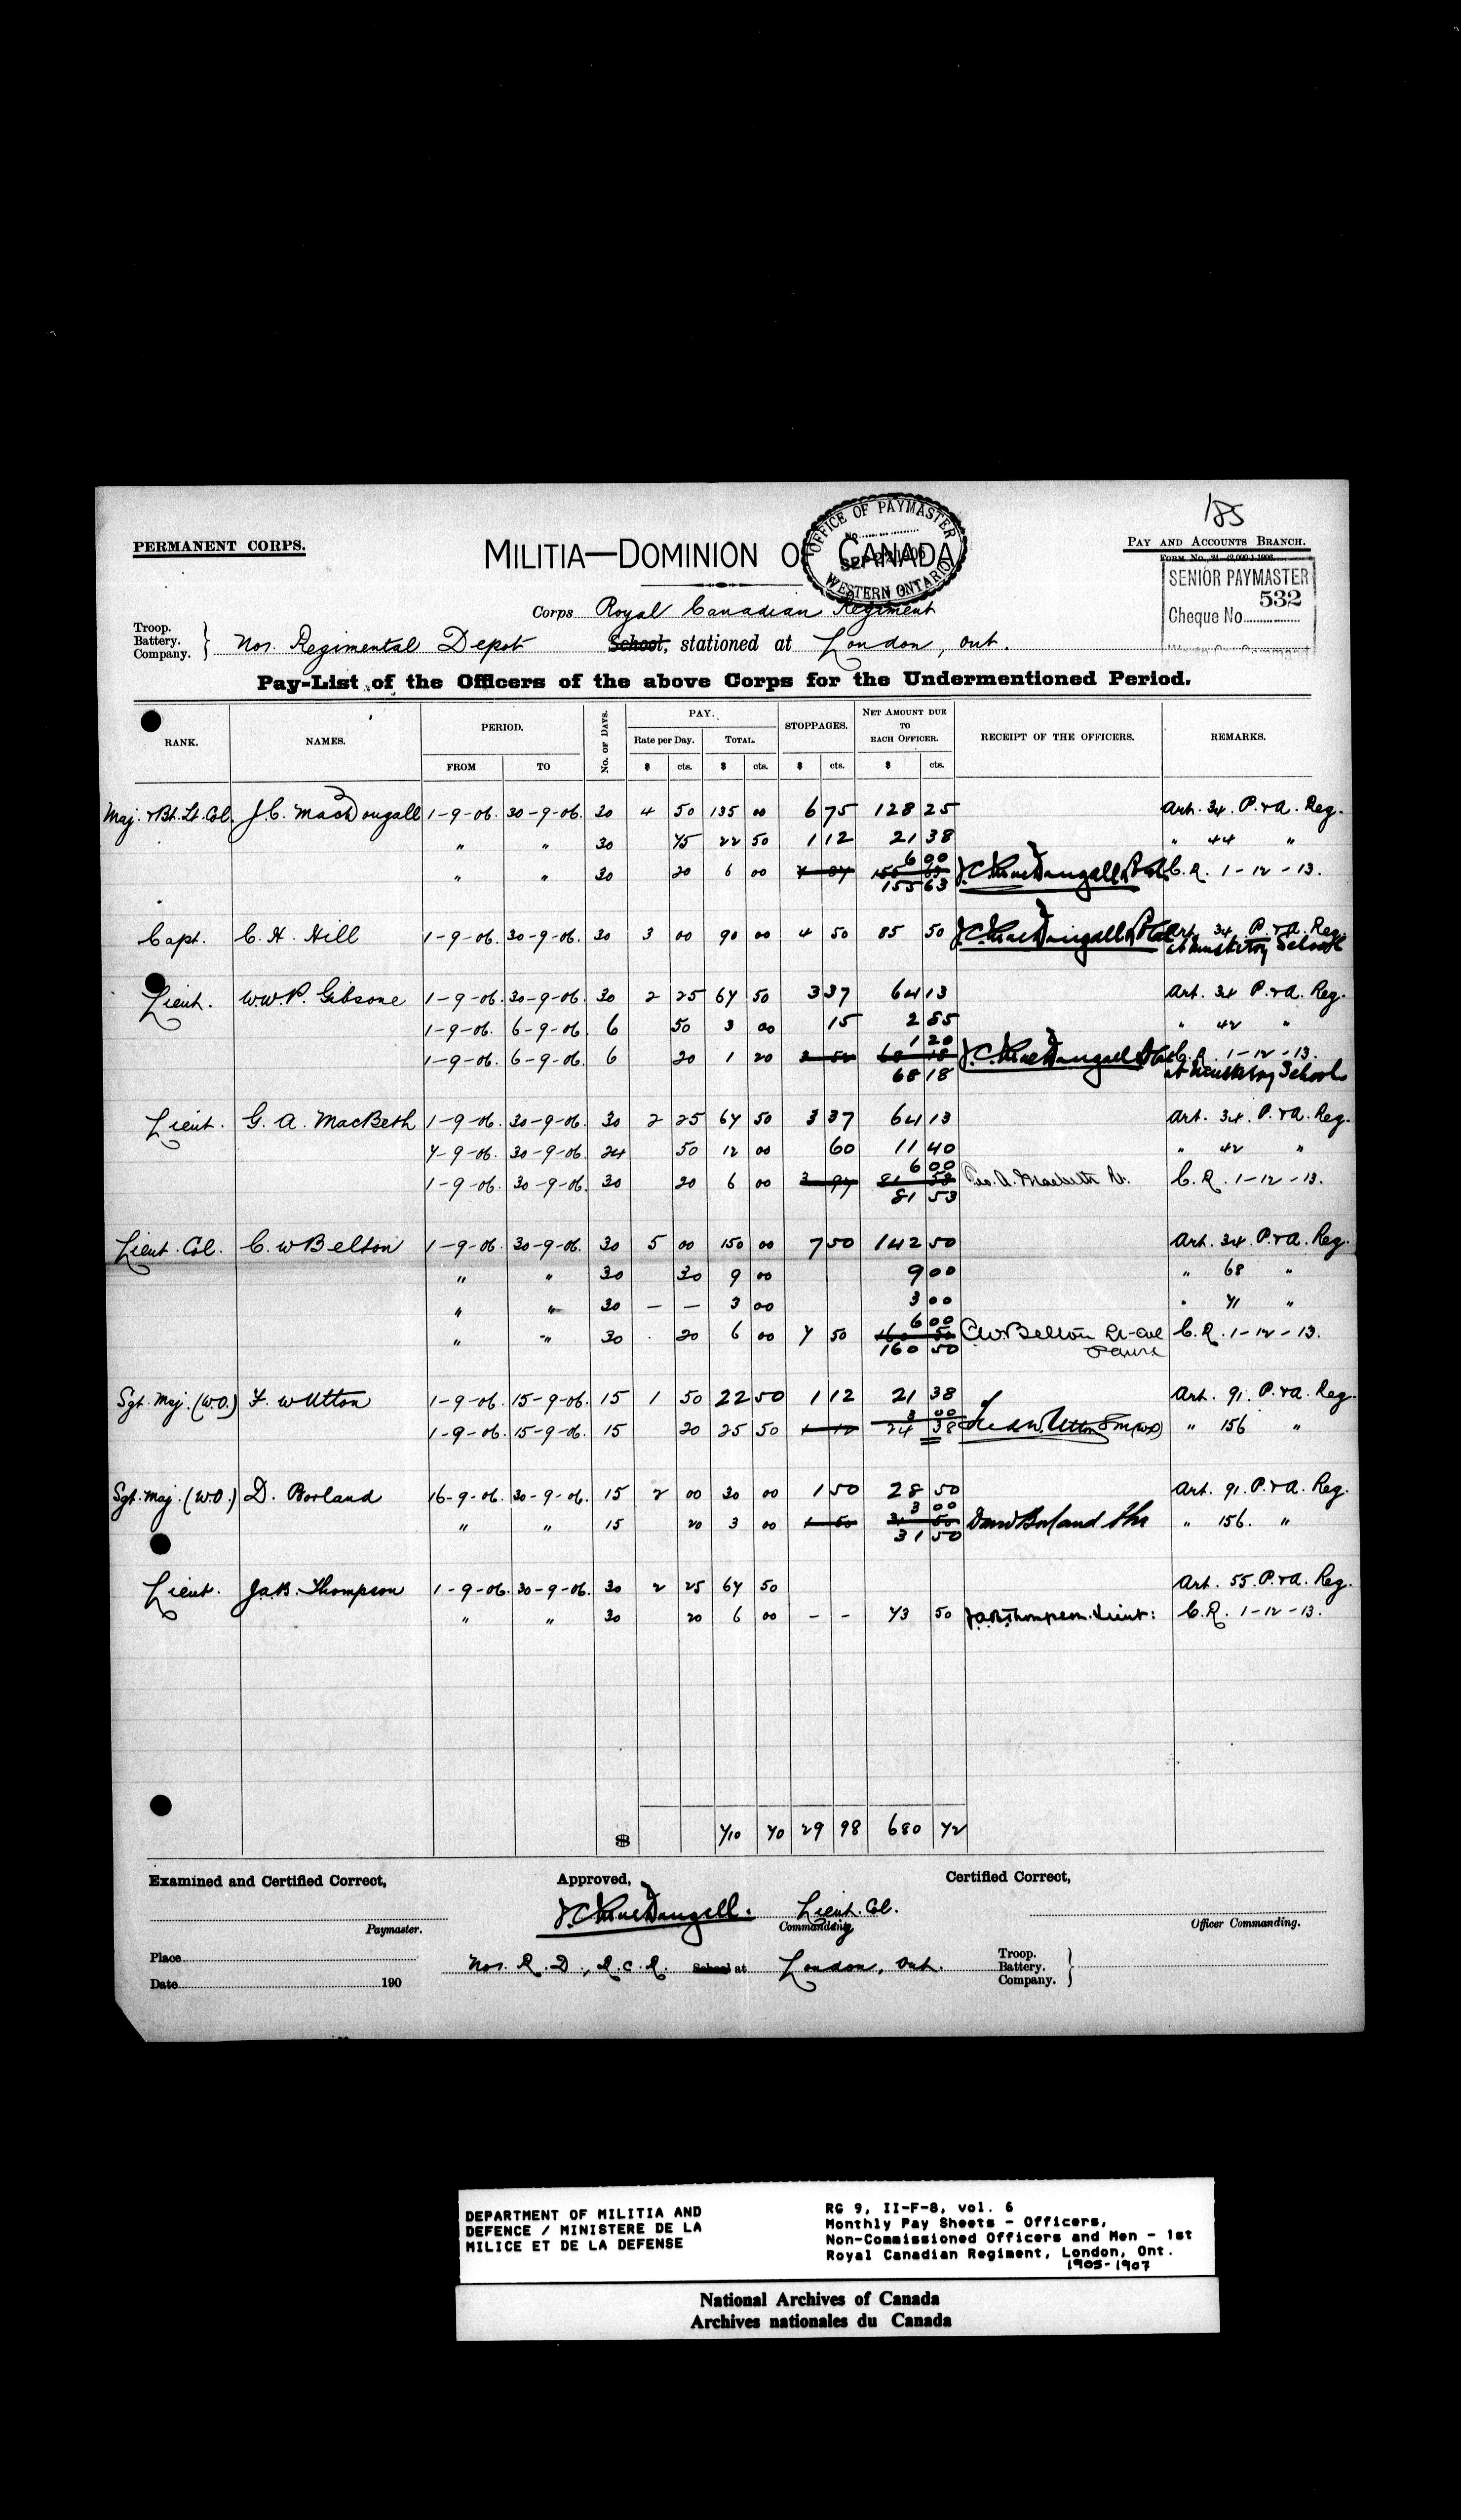 185
PERMANENT CORPS.
MILITIA—DOMINION OF CANADA
OFFICE OF PAYMASTER
No
SEP 1906
WESTERN ONTARIO
PAY AND ACCOUNTS BRANCH.
SENIOR PAYMASTER
532
Cheque No.
Corps Royal Canadian Regiment
Troop.
Battery.
Company.
No 1. Regimental Depot School, stationed at London, Ont.
Pay-List of the Officers of the above Corps for the Undermentioned Period.
RANK. NAMES. PERIOD. No. OF DAYS. PAY. STOPPAGES. NET AMOUNT DUE TO EACH OFFICER. RECEIPT OF THE OFFICERS. REMARKS.
Rate per Day. TOTAL.
FROM TO $ cts. $ cts. $ cts. $ cts.
Maj. & Bt. Lt. Col. J.C. MacDougall 1-9-06. 30-9-06. 30 4 50 135 00 6 75 128 25 Art. 34 P. & A. Reg.
" " 30 75 22 50 1 12 21 38 " 44 "
6 00
" " 30 20 6 00 7 87 155 63 J.C. MacDougall C.R. 1-12-13.
155 63
Capt. C.H. Hill 1-9-06. 30-9-06. 30 3 00 90 00 4 50 85 50 J.C. MacDougall Art. 34 P. & A. Reg.
at Musketry School
Lieut. W.W.P. Gibsone 1-9-06. 30-9-06. 30 2 25 67 50 3 37 64 13 Art. 34 P. & A. Reg.
1-9-06. 6-9-06. 6 50 3 00 15 2 85 " 42 "
1 20
1-9-06. 6-9-06. 6 20 1 20 3 52 68 18 J.C. MacDougall C.R. 1-12-13.
68 18 at Musketry School
Lieut. G.A. MacBeth 1-9-06. 30-9-06. 30 2 25 67 50 3 37 64 13 Art. 34. P. & A. Reg.
7-9-06. 30-9-06. 24 50 12 00 60 11 40 " 42 "
6 00
1-9-06. 30-9-06. 30 20 6 00 3 97 81 53 Geo. A. Macbeth Lt. C.R. 1-12-13.
81 53
Lieut. Col. C.W Belton 1-9-06. 30-9-06. 30 5 00 150 00 7 50 142 50 Art. 34. P. & A. Reg.
" " 30 30 9 00 9 00 " 68 "
" " 30 — — 3 00 3 00 " 71 "
6 00
" " 30 20 6 00 7 50 160 50 C.W. Belton Lt-Col C.R. 1-12-13.
160 50
Sgt. Maj. (W.O.) F. W Utton 1-9-06. 15-9-06. 15 1 50 22 50 1 12 21 38 Art. 91. P. & A. Reg.
3 00
1-9-06. 15-9-06. 15 20 25 50 1 12 24 38 Fred W. Utton S M (WO) " 156 "
Sgt. Maj. (W.O.) D. Borland 16-9-06. 30-9-06. 15 2 00 30 00 1 50 28 50 Art. 91. P. & A. Reg.
3 00
" " 15 20 3 00 1 50 31 50 David Borland " 156. "
31 50
Lieut. Ja.B. Thompson 1-9-06. 30-9-06. 30 2 25 67 50 Art. 55. P. & A. Reg.
" " 30 20 6 00 - - 73 50 Ja.B. Thompson. Lieut: C.R. 1-12-13.
710 70 29 98 680 72
Examined and Certified Correct, Approved, Certified Correct,
J.C. MacDougall. Lieut. Col.
Paymaster. Commanding Officer Commanding.
Place
No 1. R.D., R.C.R. School at London, Ont.
Troop.
Battery.
Company.
Date 190
DEPARTMENT OF MILITIA AND
DEFENCE / MINISTERE DE LA
MILICE ET DE LA DEFENSE
RG 9, II-F-8, vol. 6
Monthly Pay Sheets - Officers,
Non-Commissioned Officers and Men - 1st
Royal Canadian Regiment, London, Ont.
1905-1907
National Archives of Canada
Archives nationales du Canada